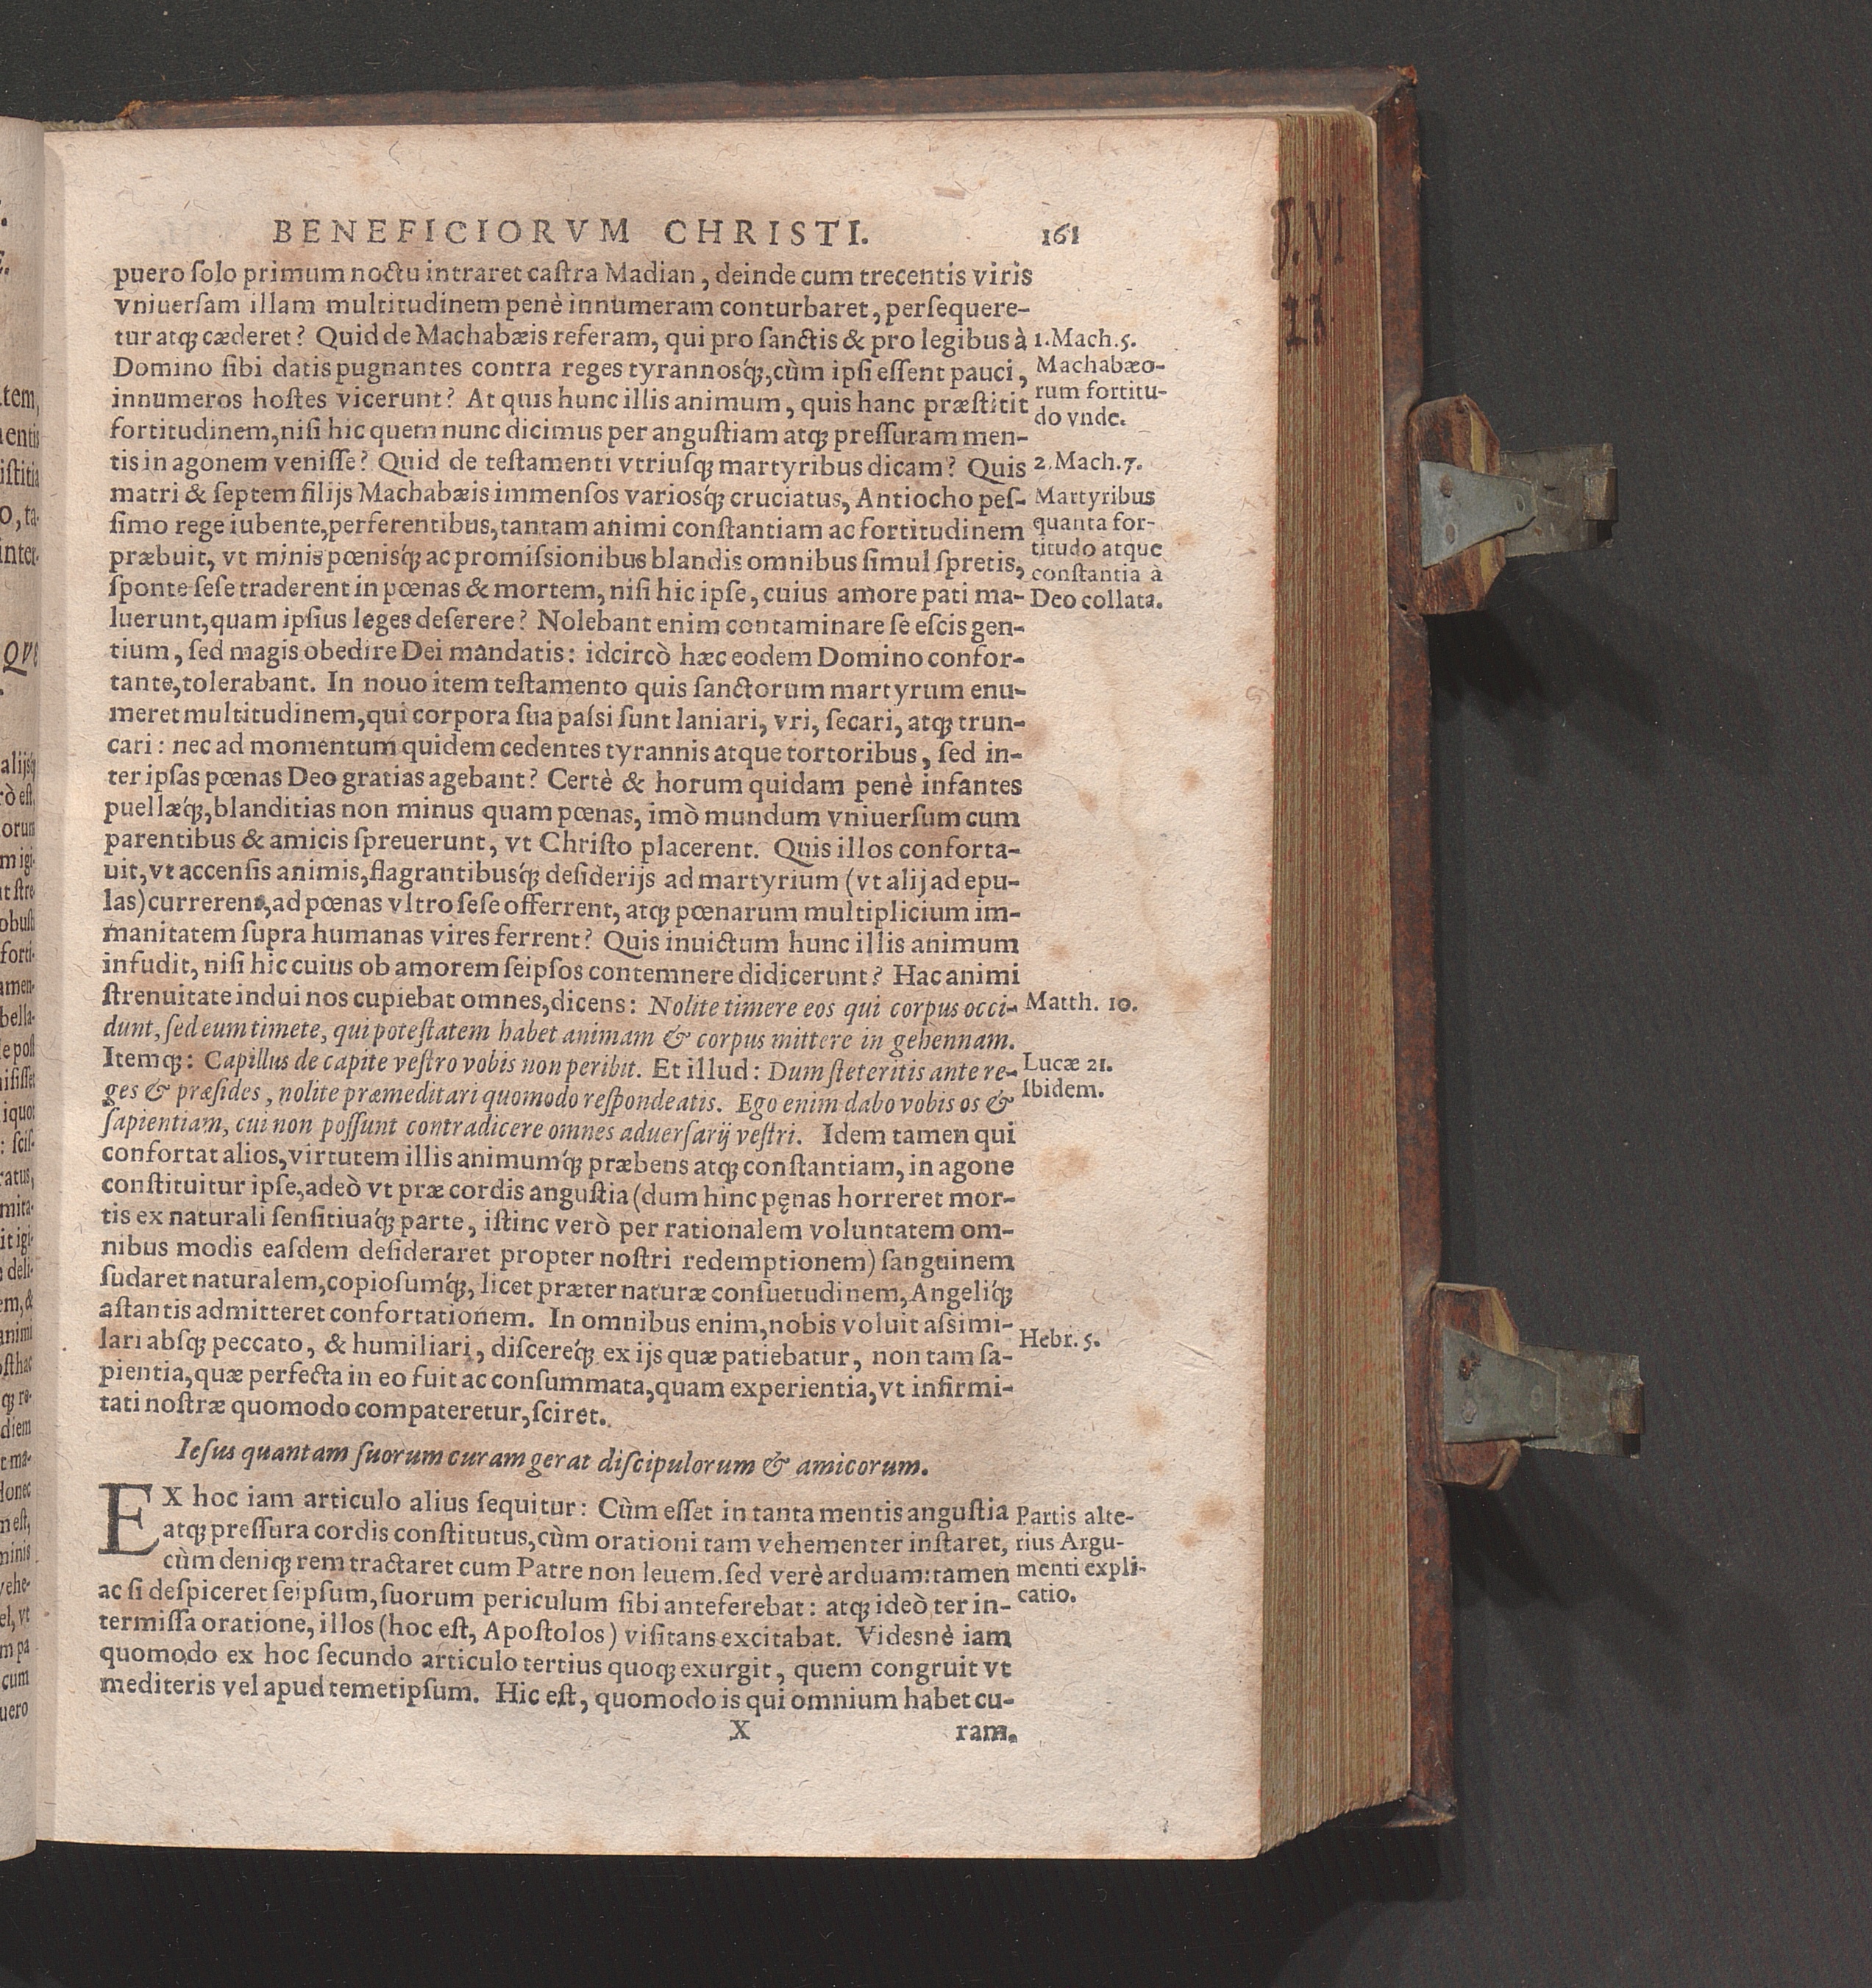 BENEFICIORVM CHRISTI. 161
puero ſolo primum noctu intraret caſtra Madian, deinde cum trecentis viris
vniuerſam illam multitudinem penè innumeram conturbaret, perſequere-
tur atq́; cæderet? Quid de Machabæis referam, qui pro ſanctis & pro legibus à
Domino ſibi datis pugnantes contra reges tyrannosq́;, cùm ipſi eſſent pauci,
innumeros hoſtes vicerunt? At quis hunc illis animum, quis hanc præſtitit
fortitudinem, niſi hic quem nunc dicimus per anguſtiam atq; preſſuram men-
tis in agonem veniſſe? Quid de teſtamenti vtriuſq; martyribus dicam? Quis
matri & ſeptem filijs Machabæis immenſos variosq́; cruciatus, Antiocho peſ-
ſimo rege iubente, perferentibus, tantam animi conſtantiam ac fortitudinem
præbuit, vt minis pœnisq́; ac promiſsionibus blandis omnibus ſimul ſpretis,
ſponte ſeſe traderent in pœnas & mortem, niſi hic ipſe, cuius amore pati ma-
luerunt, quam ipſius leges deſerere? Nolebant enim contaminare ſe eſcis gen-
tium, ſed magis obedire Dei mandatis: idcircò hæc eodem Domino confor-
tante, tolerabant. In nouo item teſtamento quis ſanctorum martyrum enu-
meret multitudinem, qui corpora ſua paſsi ſunt laniari, vri, ſecari, atq; trun-
cari: nec ad momentum quidem cedentes tyrannis atque tortoribus, ſed in-
ter ipſas pœnas Deo gratias agebant? Certè & horum quidam penè infantes
puellæq́;, blanditias non minus quam pœnas, imò mundum vniuerſum cum
parentibus & amicis ſpreuerunt, vt Chriſto placerent. Quis illos conforta-
uit, vt accenſis animis, flagrantibusq́; deſiderijs ad martyrium (vt alij ad epu-
las) currerent, ad pœnas vltro ſeſe offerrent, atq; pœnarum multiplicium im-
manitatem ſupra humanas vires ferrent? Quis inuictum hunc illis animum
infudit, niſi hic cuius ob amorem ſeipſos contemnere didicerunt? Hac animi
ſtrenuitate indui nos cupiebat omnes, dicens: Nolite timere eos qui corpus occi-
dunt, ſed eum timete, qui poteſtatem habet animam & corpus mittere in gehennam.
Itemq;: Capillus de capite veſtro vobis non peribit. Et illud: Dum ſteteritis ante re-
ges & præſides, nolite præmeditari quomodo reſpondeatis. Ego enim dabo vobis os &
ſapientiam, cui non poſſunt contradicere omnes aduerſarij veſtri. Idem tamen qui
confortat alios, virtutem illis animumq́; præbens atq; conſtantiam, in agone
conſtituitur ipſe, adeò vt præ cordis anguſtia (dum hinc pęnas horreret mor-
tis ex naturali ſenſitiuaq́; parte, iſtinc verò per rationalem voluntatem om-
nibus modis eaſdem deſideraret propter noſtri redemptionem) ſanguinem
ſudaret naturalem, copioſumq́;, licet præter naturæ conſuetudinem, Angeliq́;
aſtantis admitteret confortationem. In omnibus enim, nobis voluit aſsimi-
lari abſq; peccato, & humiliari, diſcereq́; ex ijs quæ patiebatur, non tam ſa-
pientia, quæ perfecta in eo fuit ac conſummata, quam experientia, vt infirmi-
tati noſtræ quomodo compateretur, ſciret.
Ieſus quantam ſuorum curam gerat diſcipulorum & amicorum.
EX hoc iam articulo alius ſequitur: Cùm eſſet in tanta mentis anguſtia
atq; preſſura cordis conſtitutus, cùm orationi tam vehementer inſtaret,
cùm deniq; rem tractaret cum Patre non leuem. ſed verè arduam: tamen
ac ſi deſpiceret ſeipſum, ſuorum periculum ſibi anteferebat: atq; ideò ter in-
termiſſa oratione, illos (hoc eſt, Apoſtolos) viſitans excitabat. Videsnè iam
quomodo ex hoc ſecundo articulo tertius quoq; exurgit, quem congruit vt
mediteris vel apud temetipſum. Hic eſt, quomodo is qui omnium habet cu-
X ram.
1. Mach. 5.
Machabæo-
rum fortitu-
do vnde.
2. Mach. 7.
Martyribus
quanta for-
titudo atque
conſtantia à
Deo collata.
Matth. 10.
Lucæ 21.
Ibidem.
Hebr. 5.
Partis alte-
rius Argu-
menti expli-
catio.